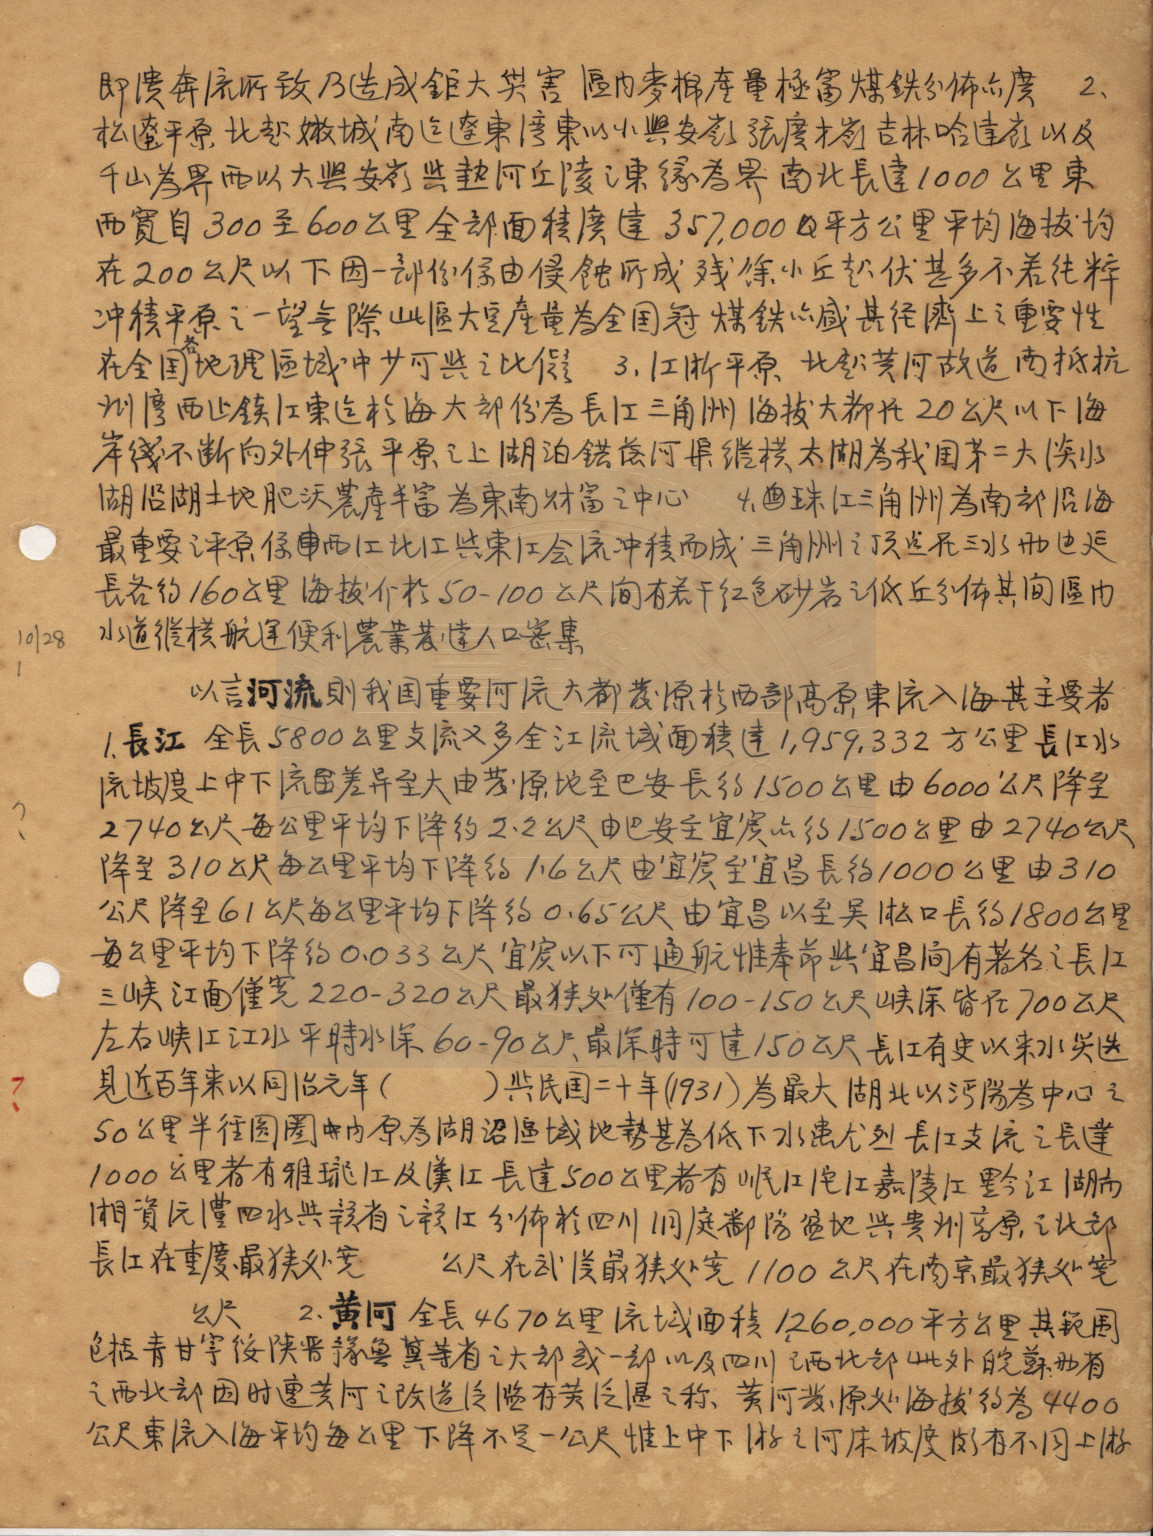 即潰奔流所致乃造成鉅大災害 區內麥棉產量極富煤鉄分佈亦廣 2、
松遼平原 北起嫩城南迄遼東湾東以小興安嶺張廣才嶺吉林哈達嶺以及
千山為界西以大興安嶺與熱河丘陵之東緣為界 南北長達1000公里東
西寬自300至600公里全部面積廣達 357,000平方公里平均海拔均
在200公尺以下因一部份係由侵蝕所成 残餘小丘起伏甚多不若純粹
冲積平原之一望無際此區大豆產量為全国冠 煤鉄亦盛甚经濟上之重要性
在全国各地理區域中少可與之比儗 3、江浙平原 北起黄河故道南抵杭
州湾西止鎮江東迄於海大部份為長江三角洲 海拔大都在20公尺以下海
岸綫不断向外伸張平原之上湖泊錯落河渠縱横太湖為我国第二大淡水
湖沿湖土地肥沃農產丰富為東南财富之中心 4.珠江三角洲為南部沿海
最重要之平原係西江北江與東江会流冲積而成 三角洲之顶点在三水两边延
長各约160公里 海拔介於50-100公尺间有若干红色砂岩之低丘分佈其间區内
水道縱横航運便利農業發達人口密集
10/28
以言河流則我国重要河流大都發原於西部高原東流入海其主要者
1.長江 全長5800公里支流又多全江流域面積達1,959,332方公里長江水
流坡度上中下流差异至大由發原地至巴安長约1500公里由6000公尺降至
?
2740公尺每公里平均下降约2.2公尺由巴安至宜賓亦约1500公里由2740公尺
降至310公尺每公里平均下降约1.6公尺由宜賓至宜昌長约1000公里由310
公尺降至61公尺每公里平均下降约0.65公尺由宜昌以至吴淞口長约1800公里
每公里平均下降约0.033公尺宜賓以下可通航惟奉節與宜昌间有著名之長江
三峡江面僅宽220-320公尺最狭处僅有100-150公尺峡深皆在700公尺
左右峡江江水平時水深60-90公尺最深時可達150公尺長江有史以来水災迭
?
見近百年来以同治元年( )與民国二十年(1931)為最大湖北以沔陽為中心之
50公里半徑圓圈内原為湖沼區域地勢甚為低下水患尤烈長江支流之長達
1000公里者有雅瓏江及漢江長達500公里者有岷江沱江嘉陵江黔江湖南
湘資沅澧四水與赣省之赣江分佈於四川洞庭鄱陽盆地與貴州高原之北部
長江在重慶最狭处宽 公尺在武漢最狭处宽1100公尺在南京最狭处宽
公尺 2.黄河 全長4670公里流域面積1,260,000平方公里其範围
包括青甘宁绥陕晋豫鲁冀等省之大部或一部以及四川之西北部此外皖蘇两省
之西北部因时遭黄河之改道泛濫有黄泛區之称、黄河發原处海拔约為4400
公尺東流入海平均每公里下降不足一公尺惟上中下游之河床坡度頗有不同上游